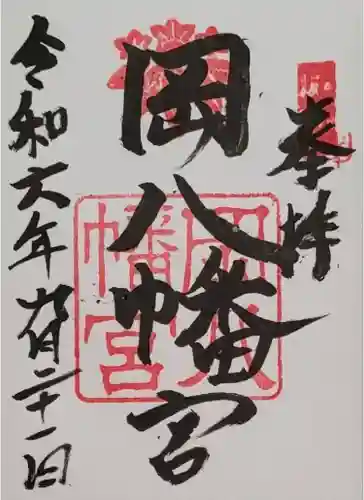 奉拝
岡八幡宮
岡八幡宮
令和六年九月二十一日